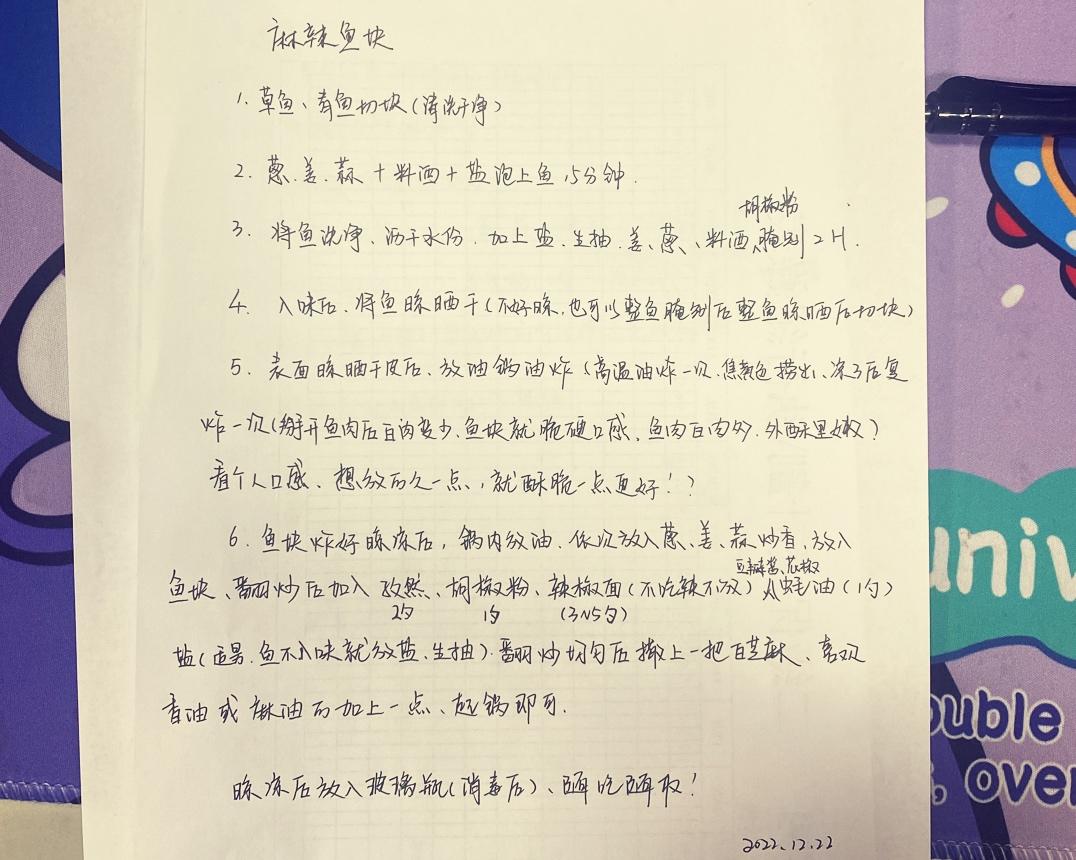 麻辣鱼块
1. 草鱼、青鱼切块(清洗干净)
2. 葱.姜.蒜+料酒+盐泡上鱼15分钟.
胡椒粉
3. 将鱼洗净、沥干水份.加上盐.生抽.姜、葱、料酒、腌制2H.
4. 入味后、将鱼晾晒干(不好晾,也可以整鱼腌制后整鱼晾晒后切块)
5. 表面晾晒干皮后、放油锅油炸(高温油炸一次.焦黄色捞出、凉了后复
炸一次(掰开鱼肉后白肉变少、鱼块就脆硬口感、鱼肉白肉多.外酥里嫩?
看个人口感、想放的久一点、,就酥脆一点更好!?
6. 鱼块炸好晾凉后,锅内放油.依次放入葱、姜、蒜炒香、放入
豆瓣酱、花椒
鱼块、翻炒后加入孜然、胡椒粉、辣椒面(不吃辣不放)蚝油(1勺)
2勺 1勺 (3~5勺)
盐(适男.鱼不入味就放盐.生抽).翻炒均匀后撒上一把白芝麻、喜欢
香油或麻油的加上一点、起锅即可.
晾凉后放入玻璃瓶(消毒后)、随吃随取!
2022.12.22
univ
ouble
, over